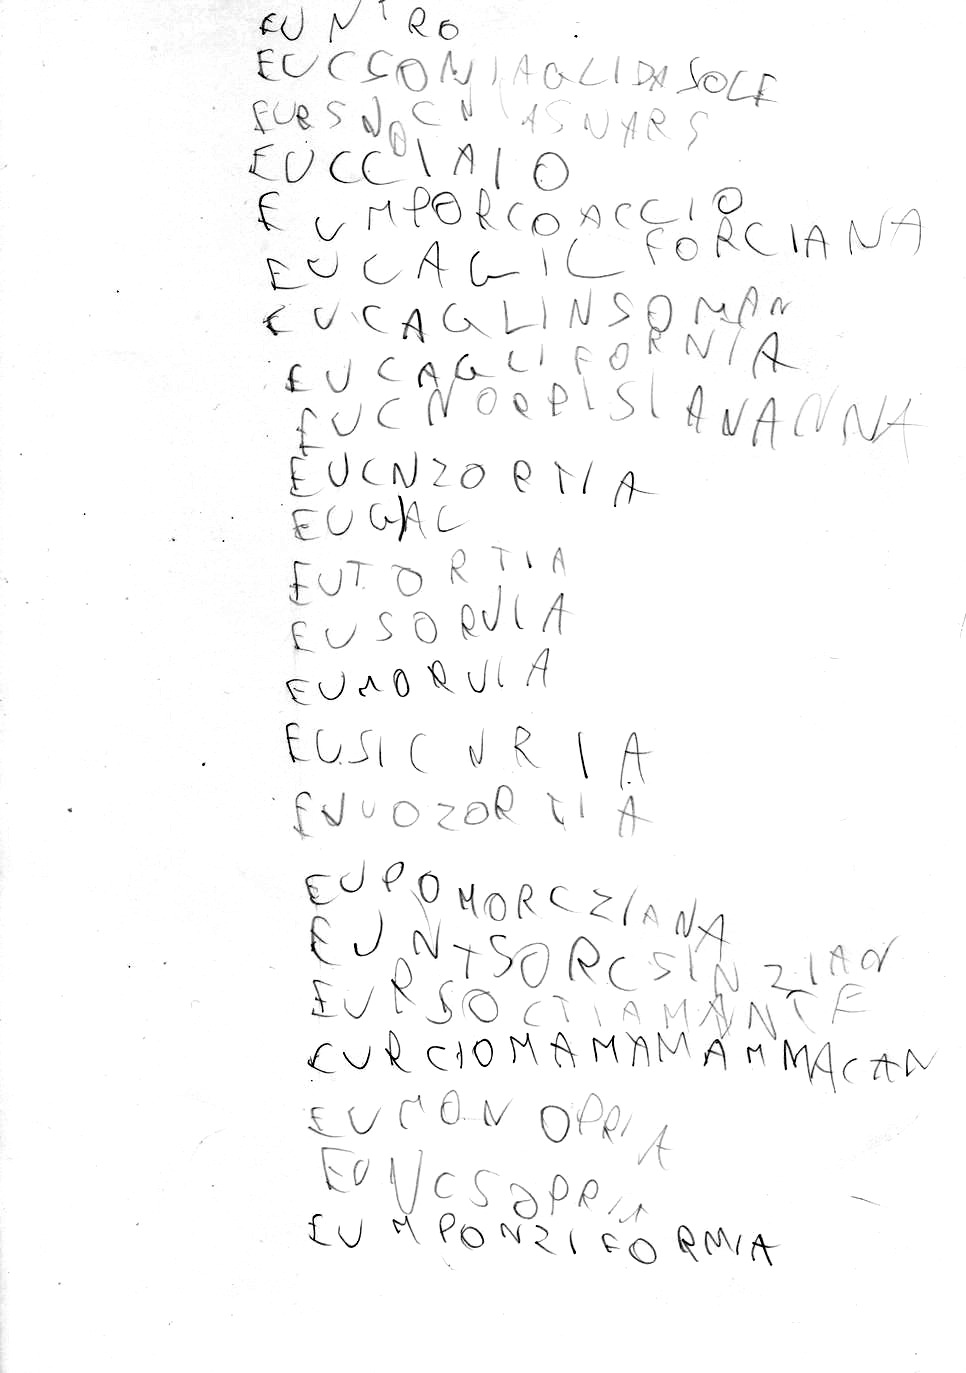 EUNTRO
EUCSONIAGLIDASOLE
EURSNOCNIASNARS
EUCCIAIO
EUMPORCOACCIO
EUCAGIL FORCIANA
EUCAGLINSOMAN
EUCAGLIFORNIA
EUCNORPISIANANNA
EUCNZORTIA
EUGAL
EUTORTIA
EUSORVIA
EUMORVIA
EUSICURIA
EUVOZORTIA
EUPOMORCZIANA
EUNTSORCSINZIAN
EURSOCTIAMANTE
EURCIOMAMAMAMMACAN
EUMONOPRIA
EUNCSOPRIA
EUMPONZIFORMIA